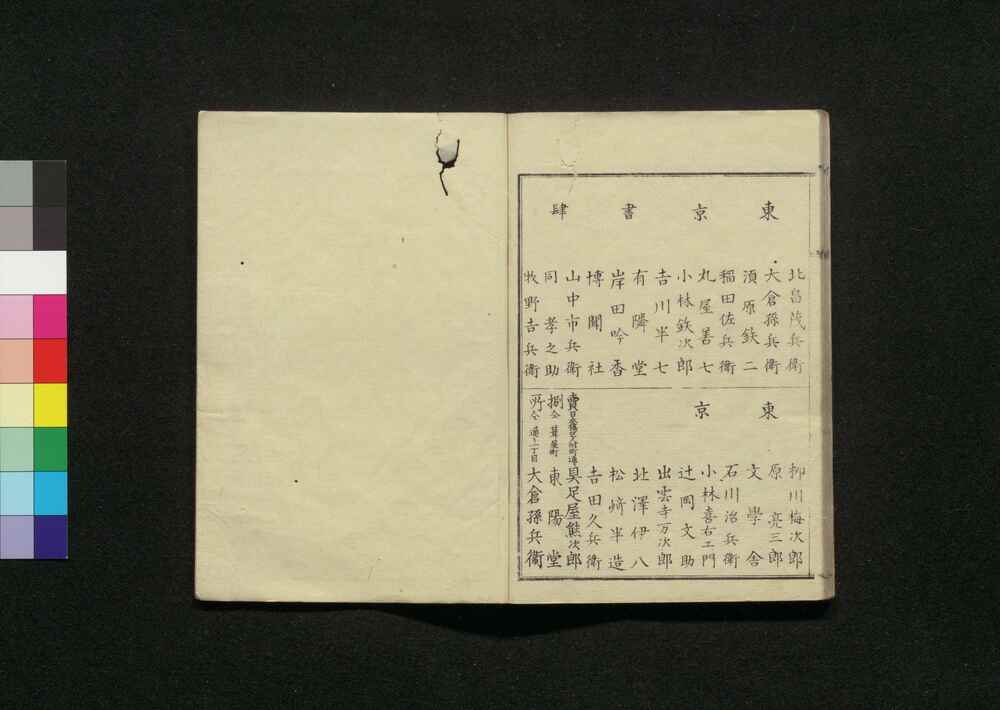 東京書肆
北畠茂兵衛
大倉孫兵衛
須原鉄二
稲田佐兵衛
丸屋善七
小林鉄次郎
吉川半七
有隣堂
岸田吟香
博聞社
山中市兵衛
同孝之助
牧野吉兵衛
東京
柳川梅次郎
原亮三郎
文學舎
石川治兵衛
小林喜右エ門
辻岡文助
出雲寺万次郎
北澤伊八
松﨑半造
吉田久兵衛
賣 具足屋熊次郎
捌 仝葺屋町 東陽堂
所 仝通一丁目 大倉孫兵衛